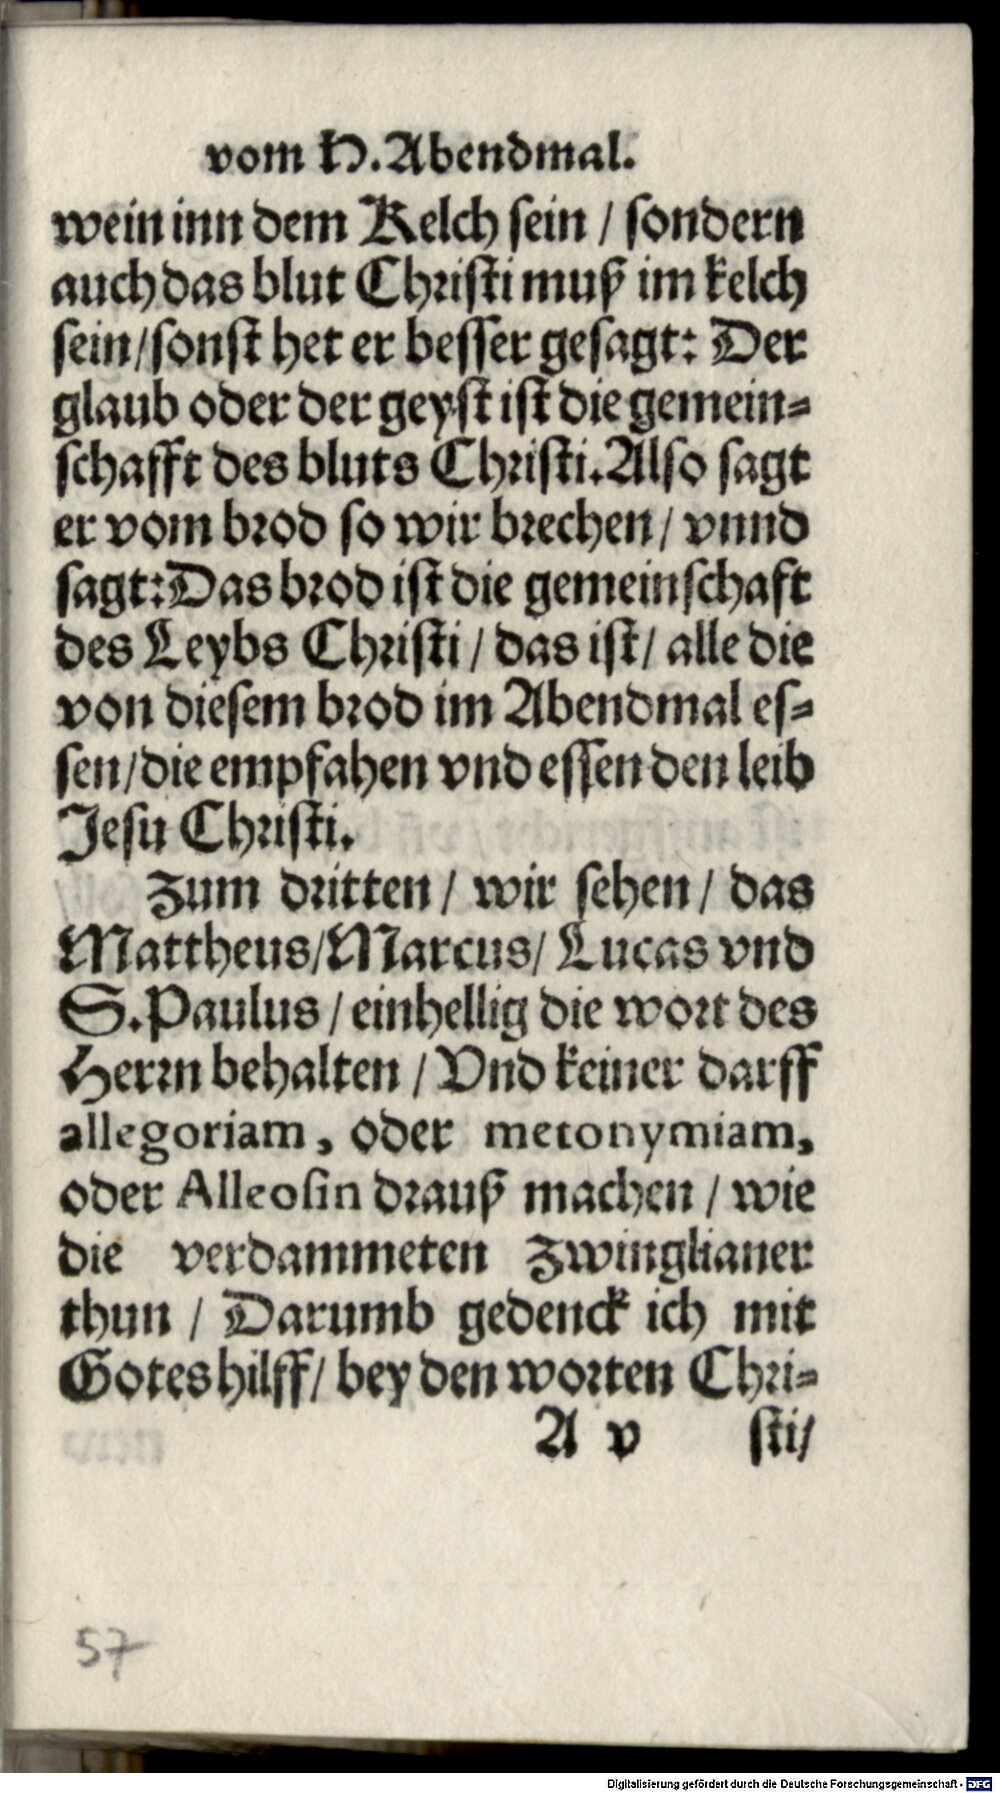 vom H. Abendmal.
wein inn dem Kelch sein / sondern
auch das blut Christi muß im kelch
sein / sonst het er besser gesagt: Der
glaub oder der geyst ist die gemein-
schafft des bluts Christi. Also sagt
er vom brod so wir brechen / vnnd
sagt: Das brod ist die gemeinschaft
des Leybs Christi / das ist / alle die
von diesem brod im Abendmal es-
sen / die empfahen vnd essen den leib
Jesu Christi.
Zum dritten / wir sehen / das
Mattheus / Marcus / Lucas vnd
S. Paulus / einhellig die wort des
Herrn behalten / Vnd keiner darff
allegoriam, oder metonymiam,
oder Alleosin drauß machen / wie
die verdammeten Zwinglianer
thun / Darumb gedenck ich mit
Gotes hilff / bey den worten Chri-
A v sti /
57
Digitalisierung gefördert durch die Deutsche Forschungsgemeinschaft - DFG